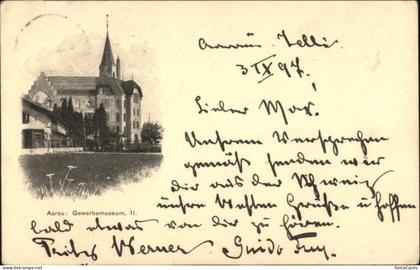 Aarau: Gewerbemuseum, II.
3/IX 97.
Lieber Max.
Unserem Versprechen
gemäß senden wir
Dir aus der Schweiz
unsre besten Grüße u hoffen
bald etwas von dir zu hören.
Fritz Werner Guido